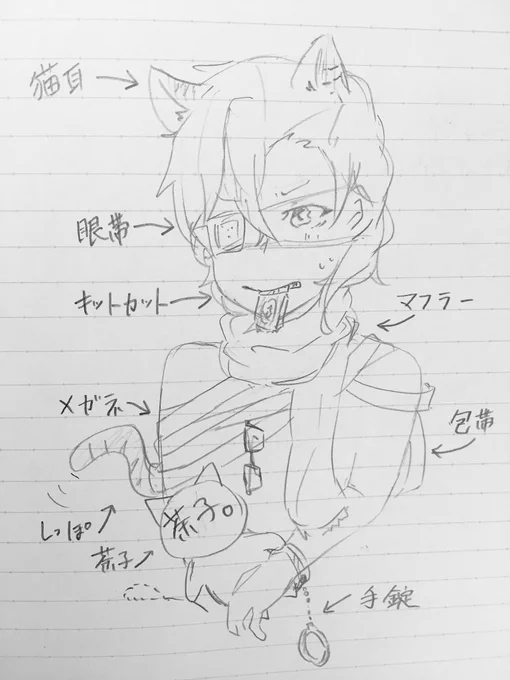 猫耳
眼帯
キットカット
マフラー
メガネ
包帯
茶子。
しっぽ
茶子
手錠